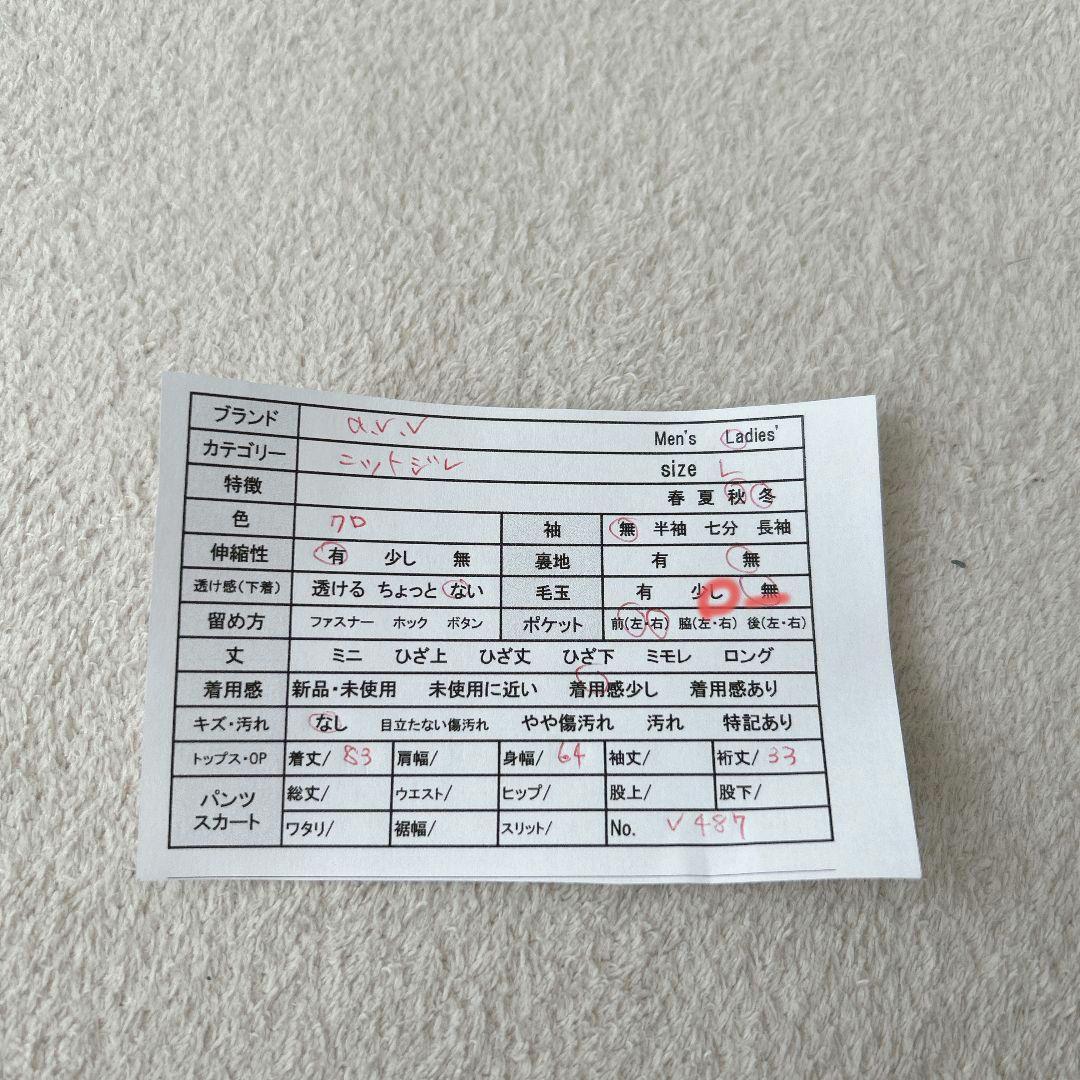 ブランド a.v.v Men's Ladies'
カテゴリー ニットジレ size L
特徴 春 夏 秋 冬
色 クロ 袖 無 半袖 七分 長袖
伸縮性 有 少し 無 裏地 有 無
透け感(下着) 透ける ちょっと ない 毛玉 有 少し 無
留め方 ファスナー ホック ボタン ポケット 前(左・右) 脇(左・右) 後(左・右)
丈 ミニ ひざ上 ひざ丈 ひざ下 ミモレ ロング
着用感 新品・未使用 未使用に近い 着用感少し 着用感あり
キズ・汚れ なし 目立たない傷汚れ やや傷汚れ 汚れ 特記あり
トップス・OP 着丈/ 83 肩幅/ 身幅/ 64 袖丈/ 裄丈/ 33
パンツ スカート 総丈/ ウエスト/ ヒップ/ 股上/ 股下/
ワタリ/ 裾幅/ スリット/ No. V487